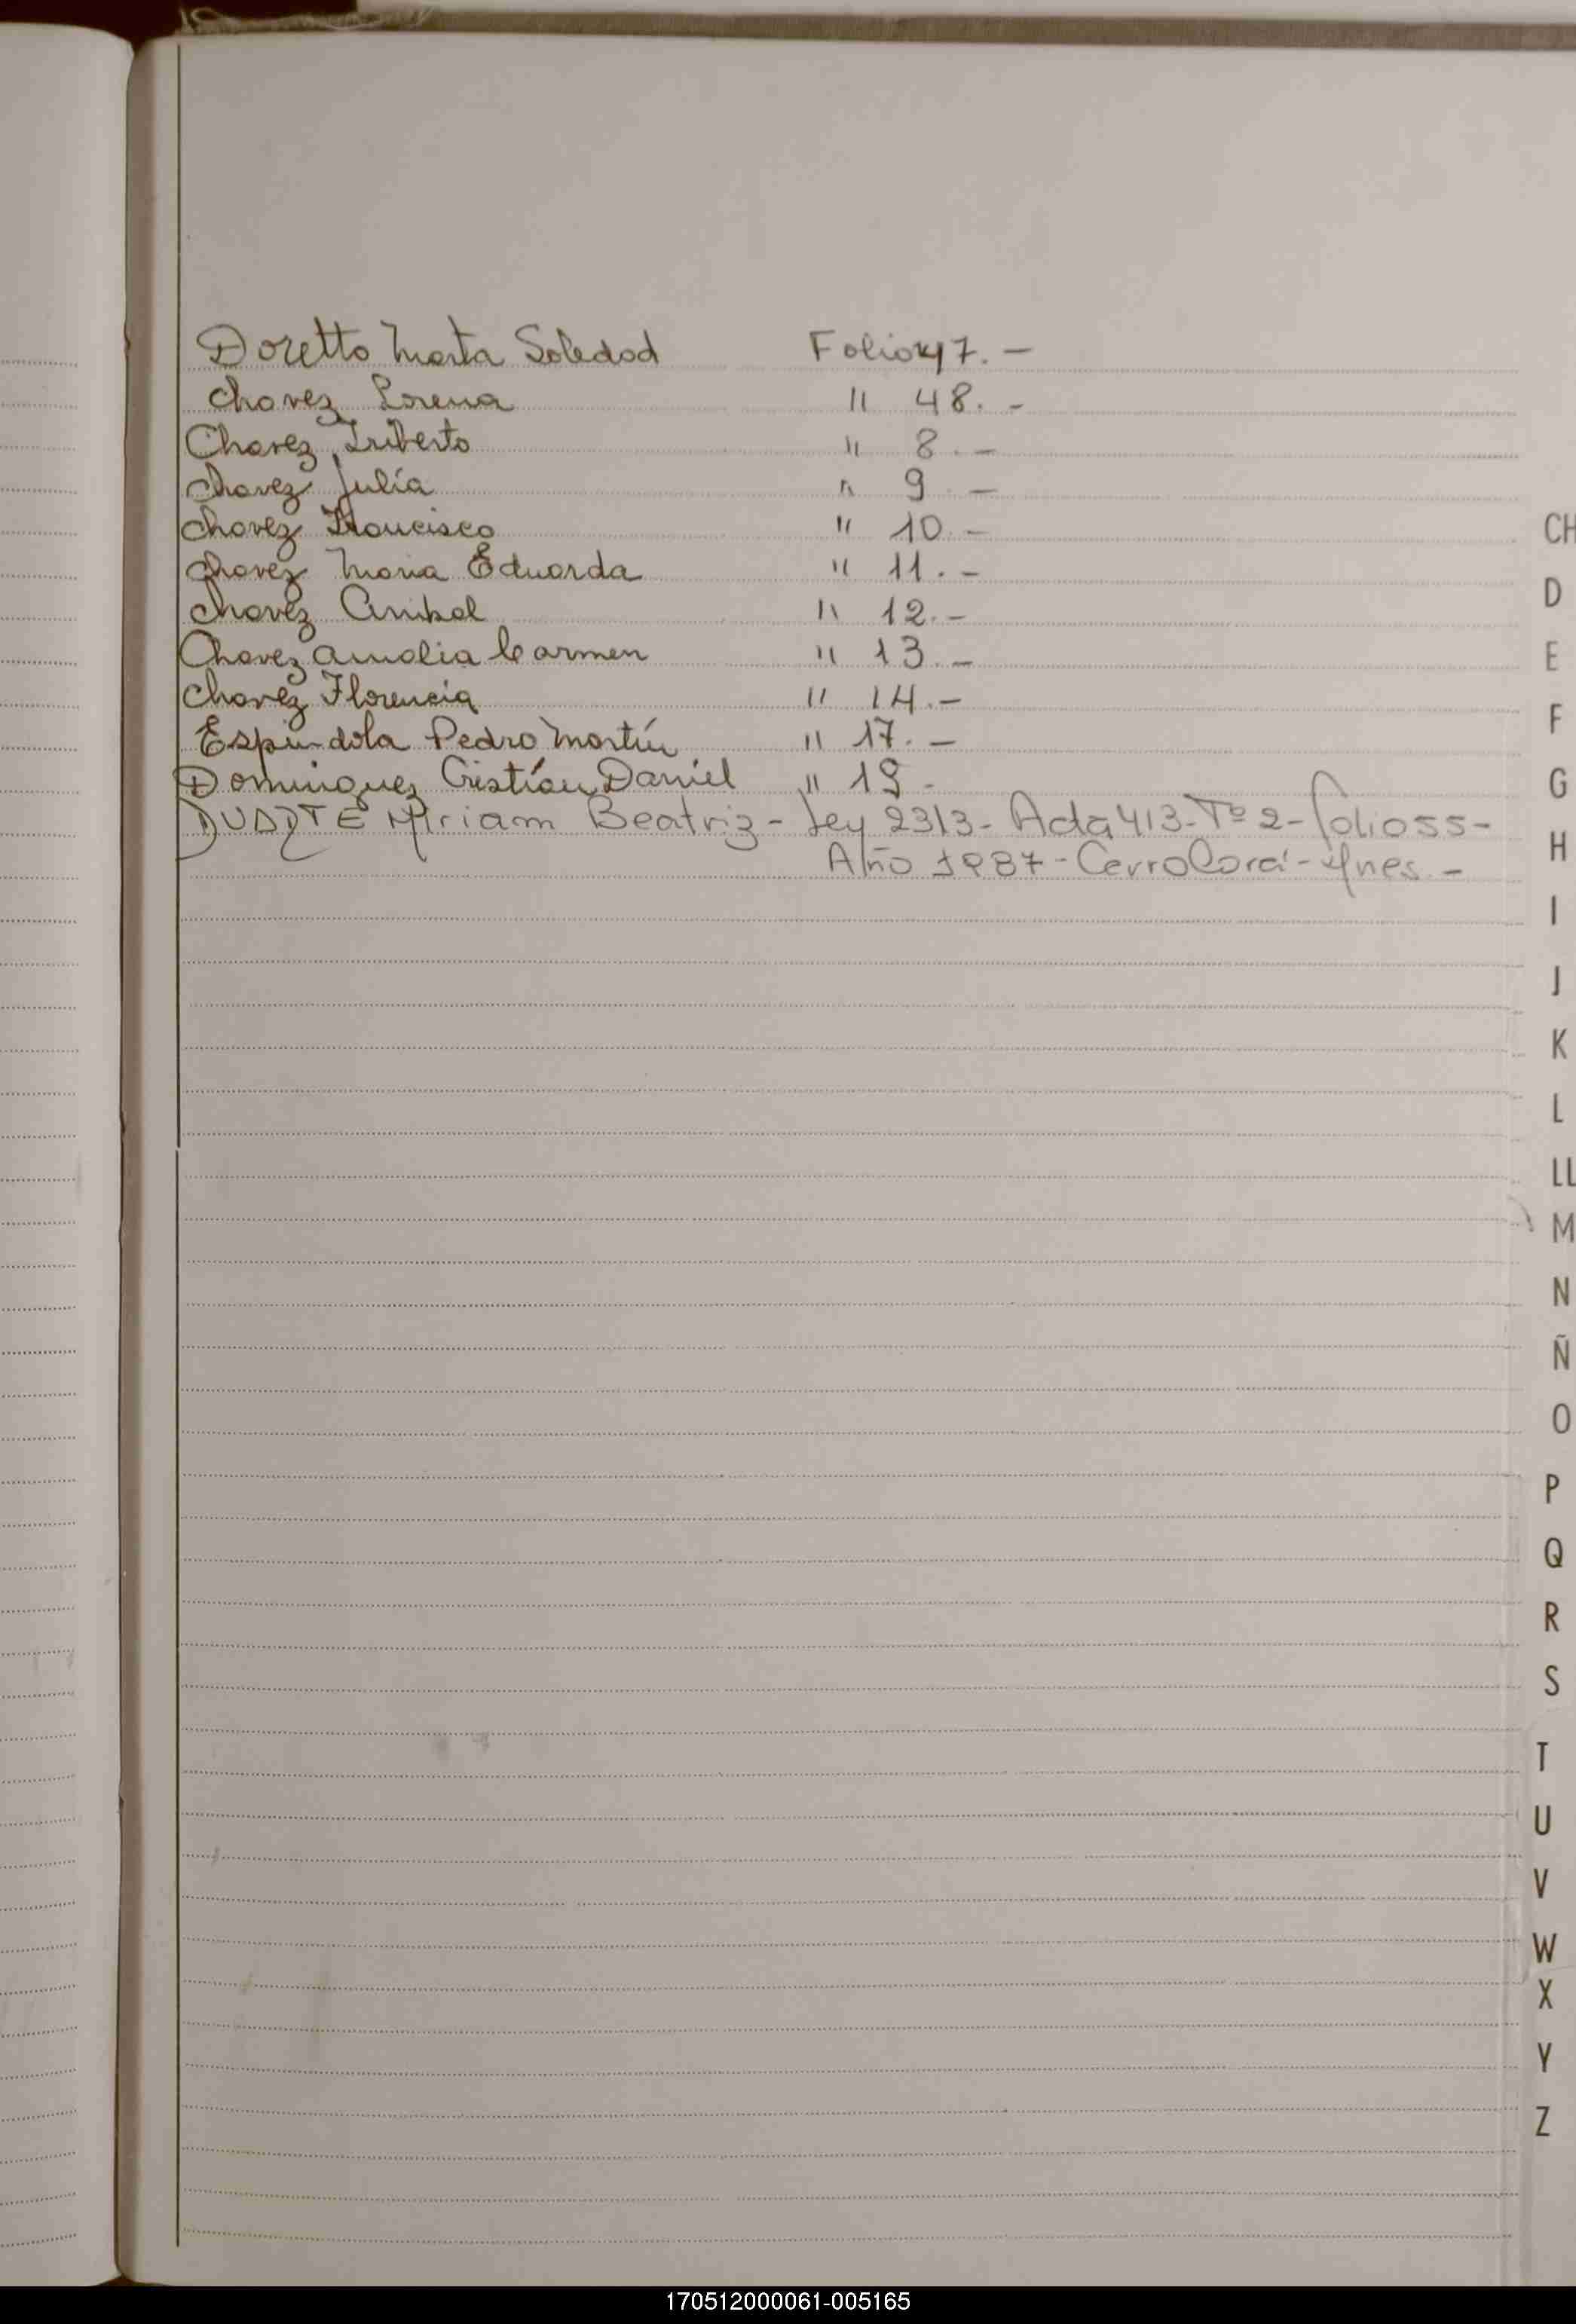 Doretto Marta Soledad Folio 47. -
Chavez Lorena " 48. -
Chavez Iriberto " 8. -
Chavez Julia " 9 -
Chavez Francisco " 10. -
Chavez Maria Eduarda " 11. -
Chavez Anibal " 12. -
Chavez Amalia Carmen " 13. -
Chavez Florencia " 14. -
Espindola Pedro Martín " 17. -
Dominguez Cristían Daniel " 19 -
DUARTE Miriam Beatriz - Ley 2313 - Acta 413 - Tº 2 - folio 55 -
Año 1987 - Cerro Corá - Mnes. -
CH
D
E
F
G
H
I
J
K
L
LL
M
N
Ñ
O
P
Q
R
S
T
U
V
W
X
Y
Z
170512000061-005165